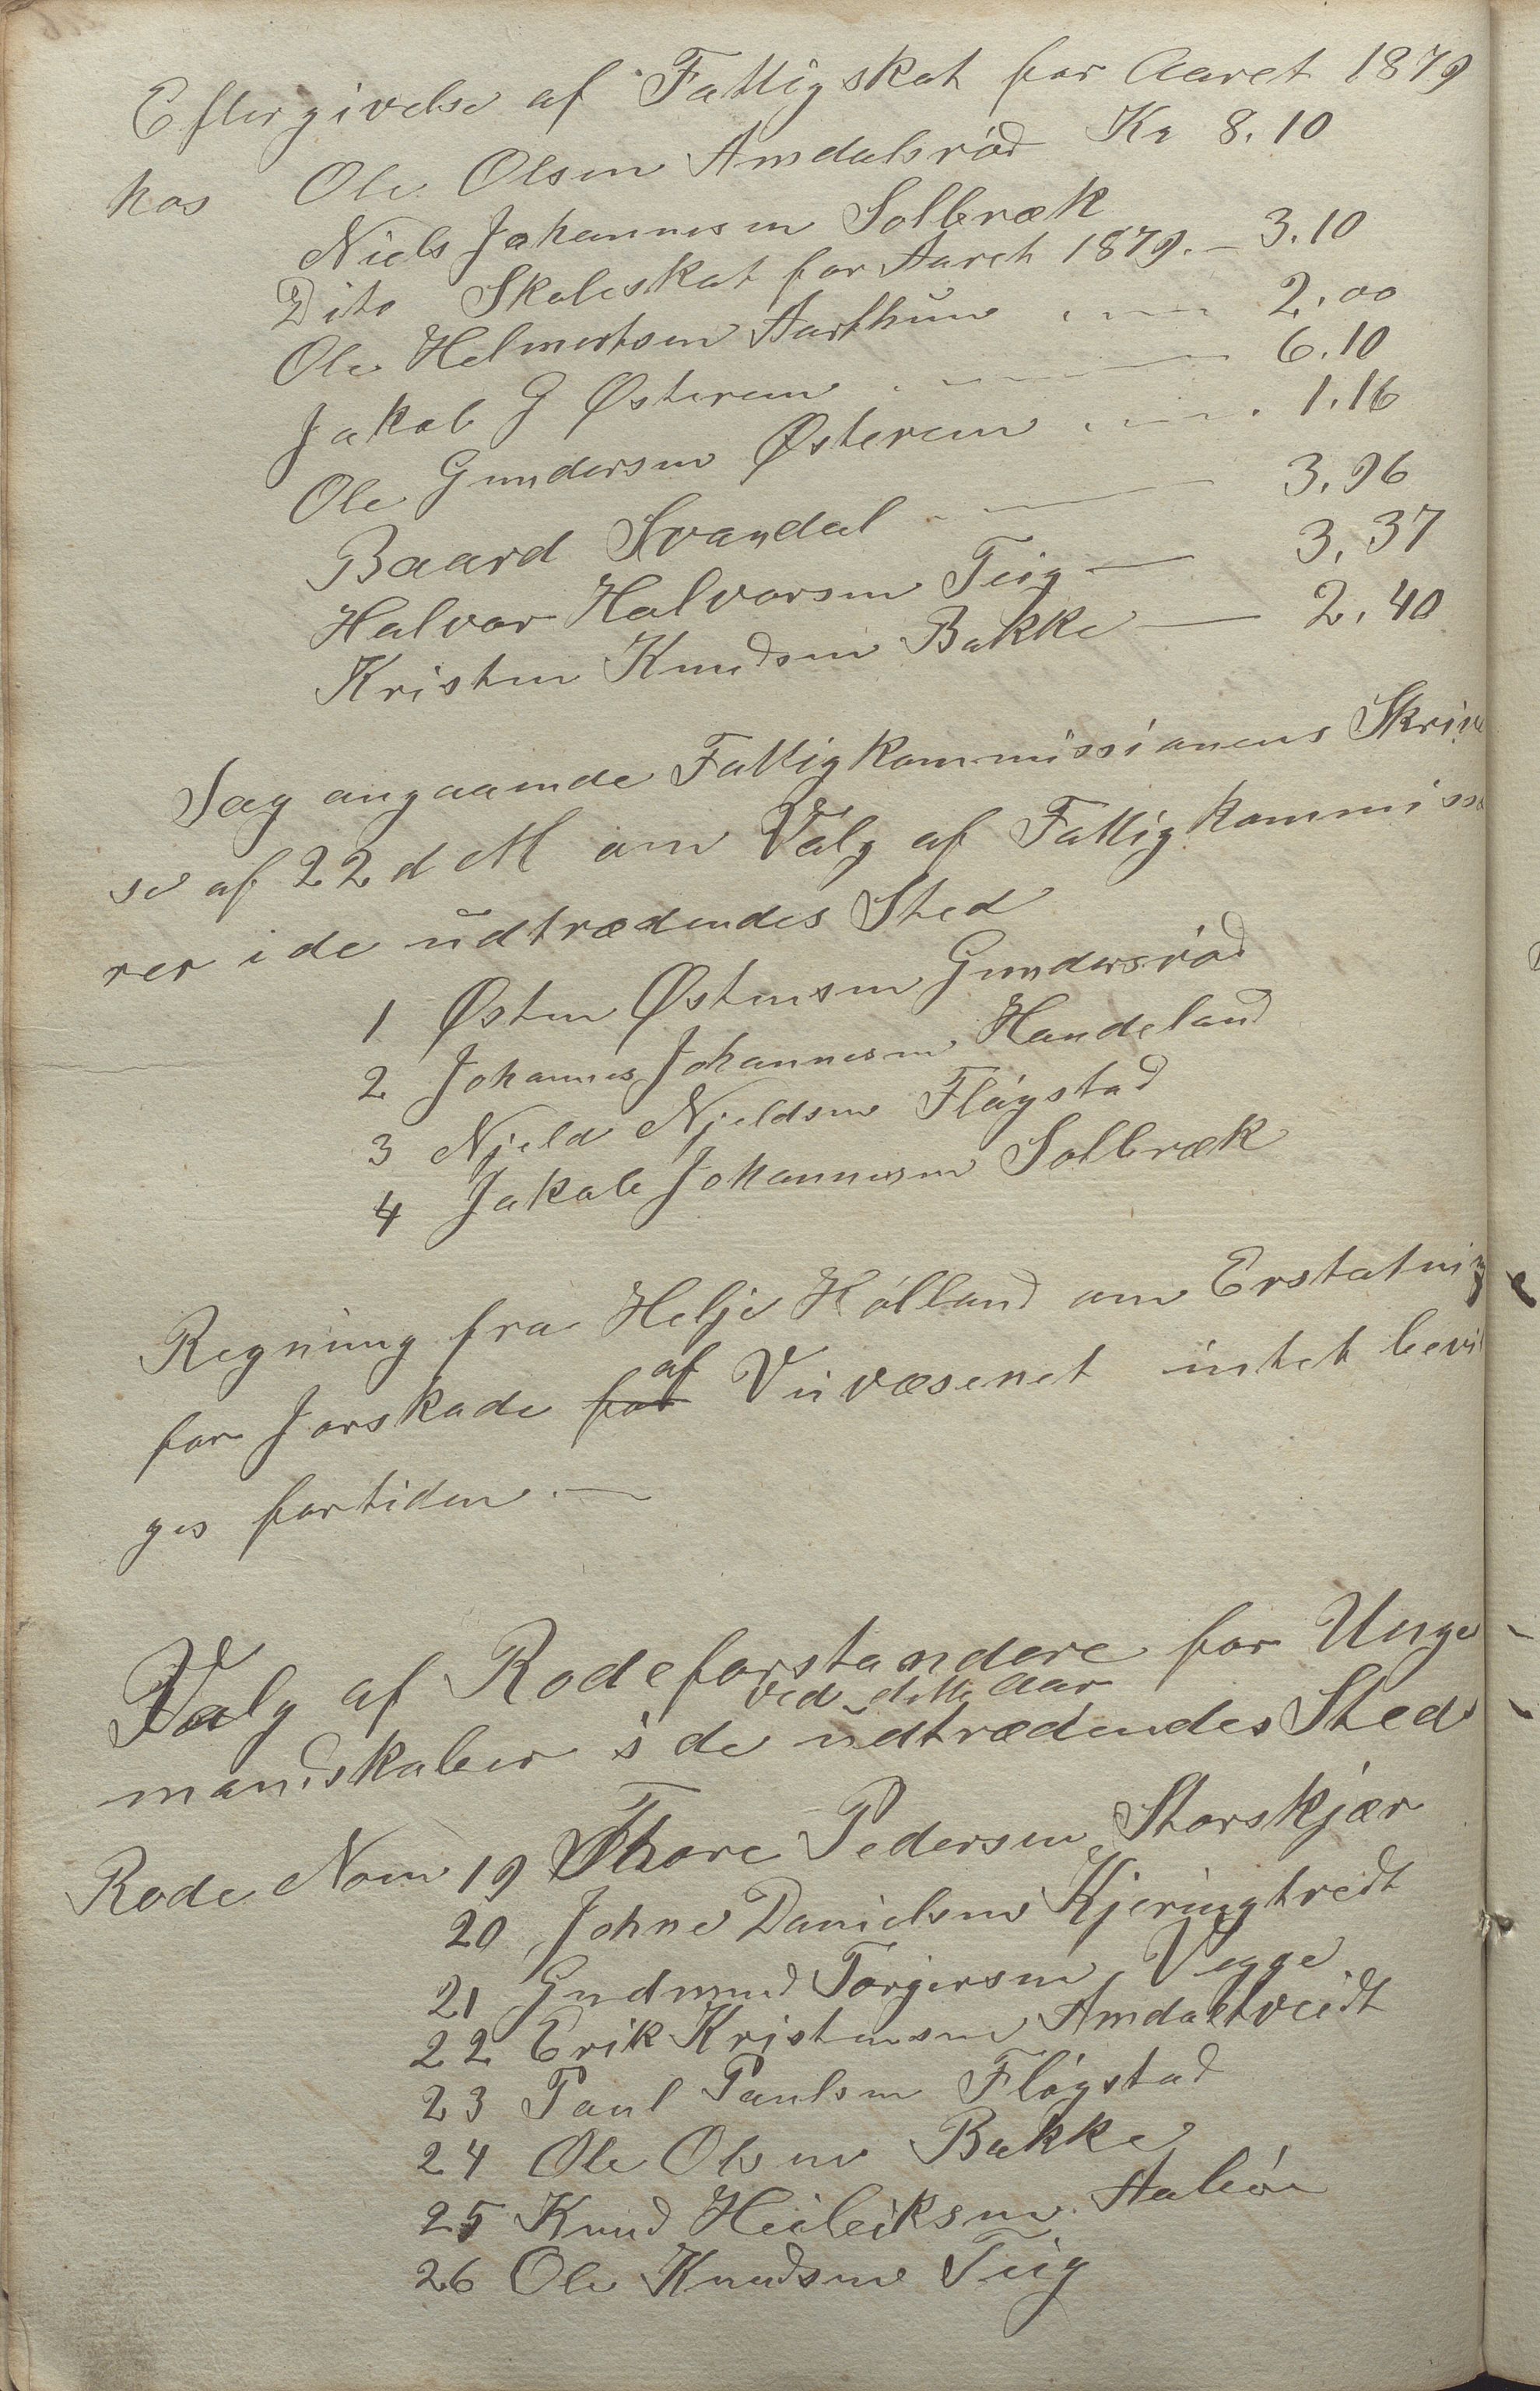 Eftergivelse af Fattigskat for Aaret 1879
hos Ole Olsen Amdalsrød Kr 8.10
Niels Johannesen Solbræk
Dito Skoleskat for Aaret 1879. — 3.10
Ole Helmertsen Aarthun . — 2.00
Jakob G Østerem . — 6.10
Ole Gundersen Østerem . — 1.16
Baard Svandal — 3.96
Halvor Halvorsen Teig — 3.37
Kristen Knudsen Bakke — 2.40
Sag angaaende Fattigkommissionens Skrivel
se af 22 d M om Valg af Fattigkommissæ
rer i de udtrædendes Sted
1 Østen Østensen Gundersrød
2 Johannes Johannesen Handeland
3 Njeld Njeldsen Fløgstad
4 Jakob Johannesen Solbræk
Regning fra Helje Hølland om Erstatning
for Jorskade for af Veivæsenet intet bevil
ges fortiden. —
Valg af Rodeforstandere for Unge
ved dette Aar
mandskaber i de udtrædendes Sted
Rode Nom 19 Thore Pedersen Storskjær
20 Johne Danielsen Kjeringtvedt
21 Gudmund Torgersen Vegge
22 Erik Kristensen Amdaltveidt
23 Paul Paulsen Fløgstad
24 Ole Olsen Bakke
25 Knud Heileiksen
26 Ole Knudsen Teig